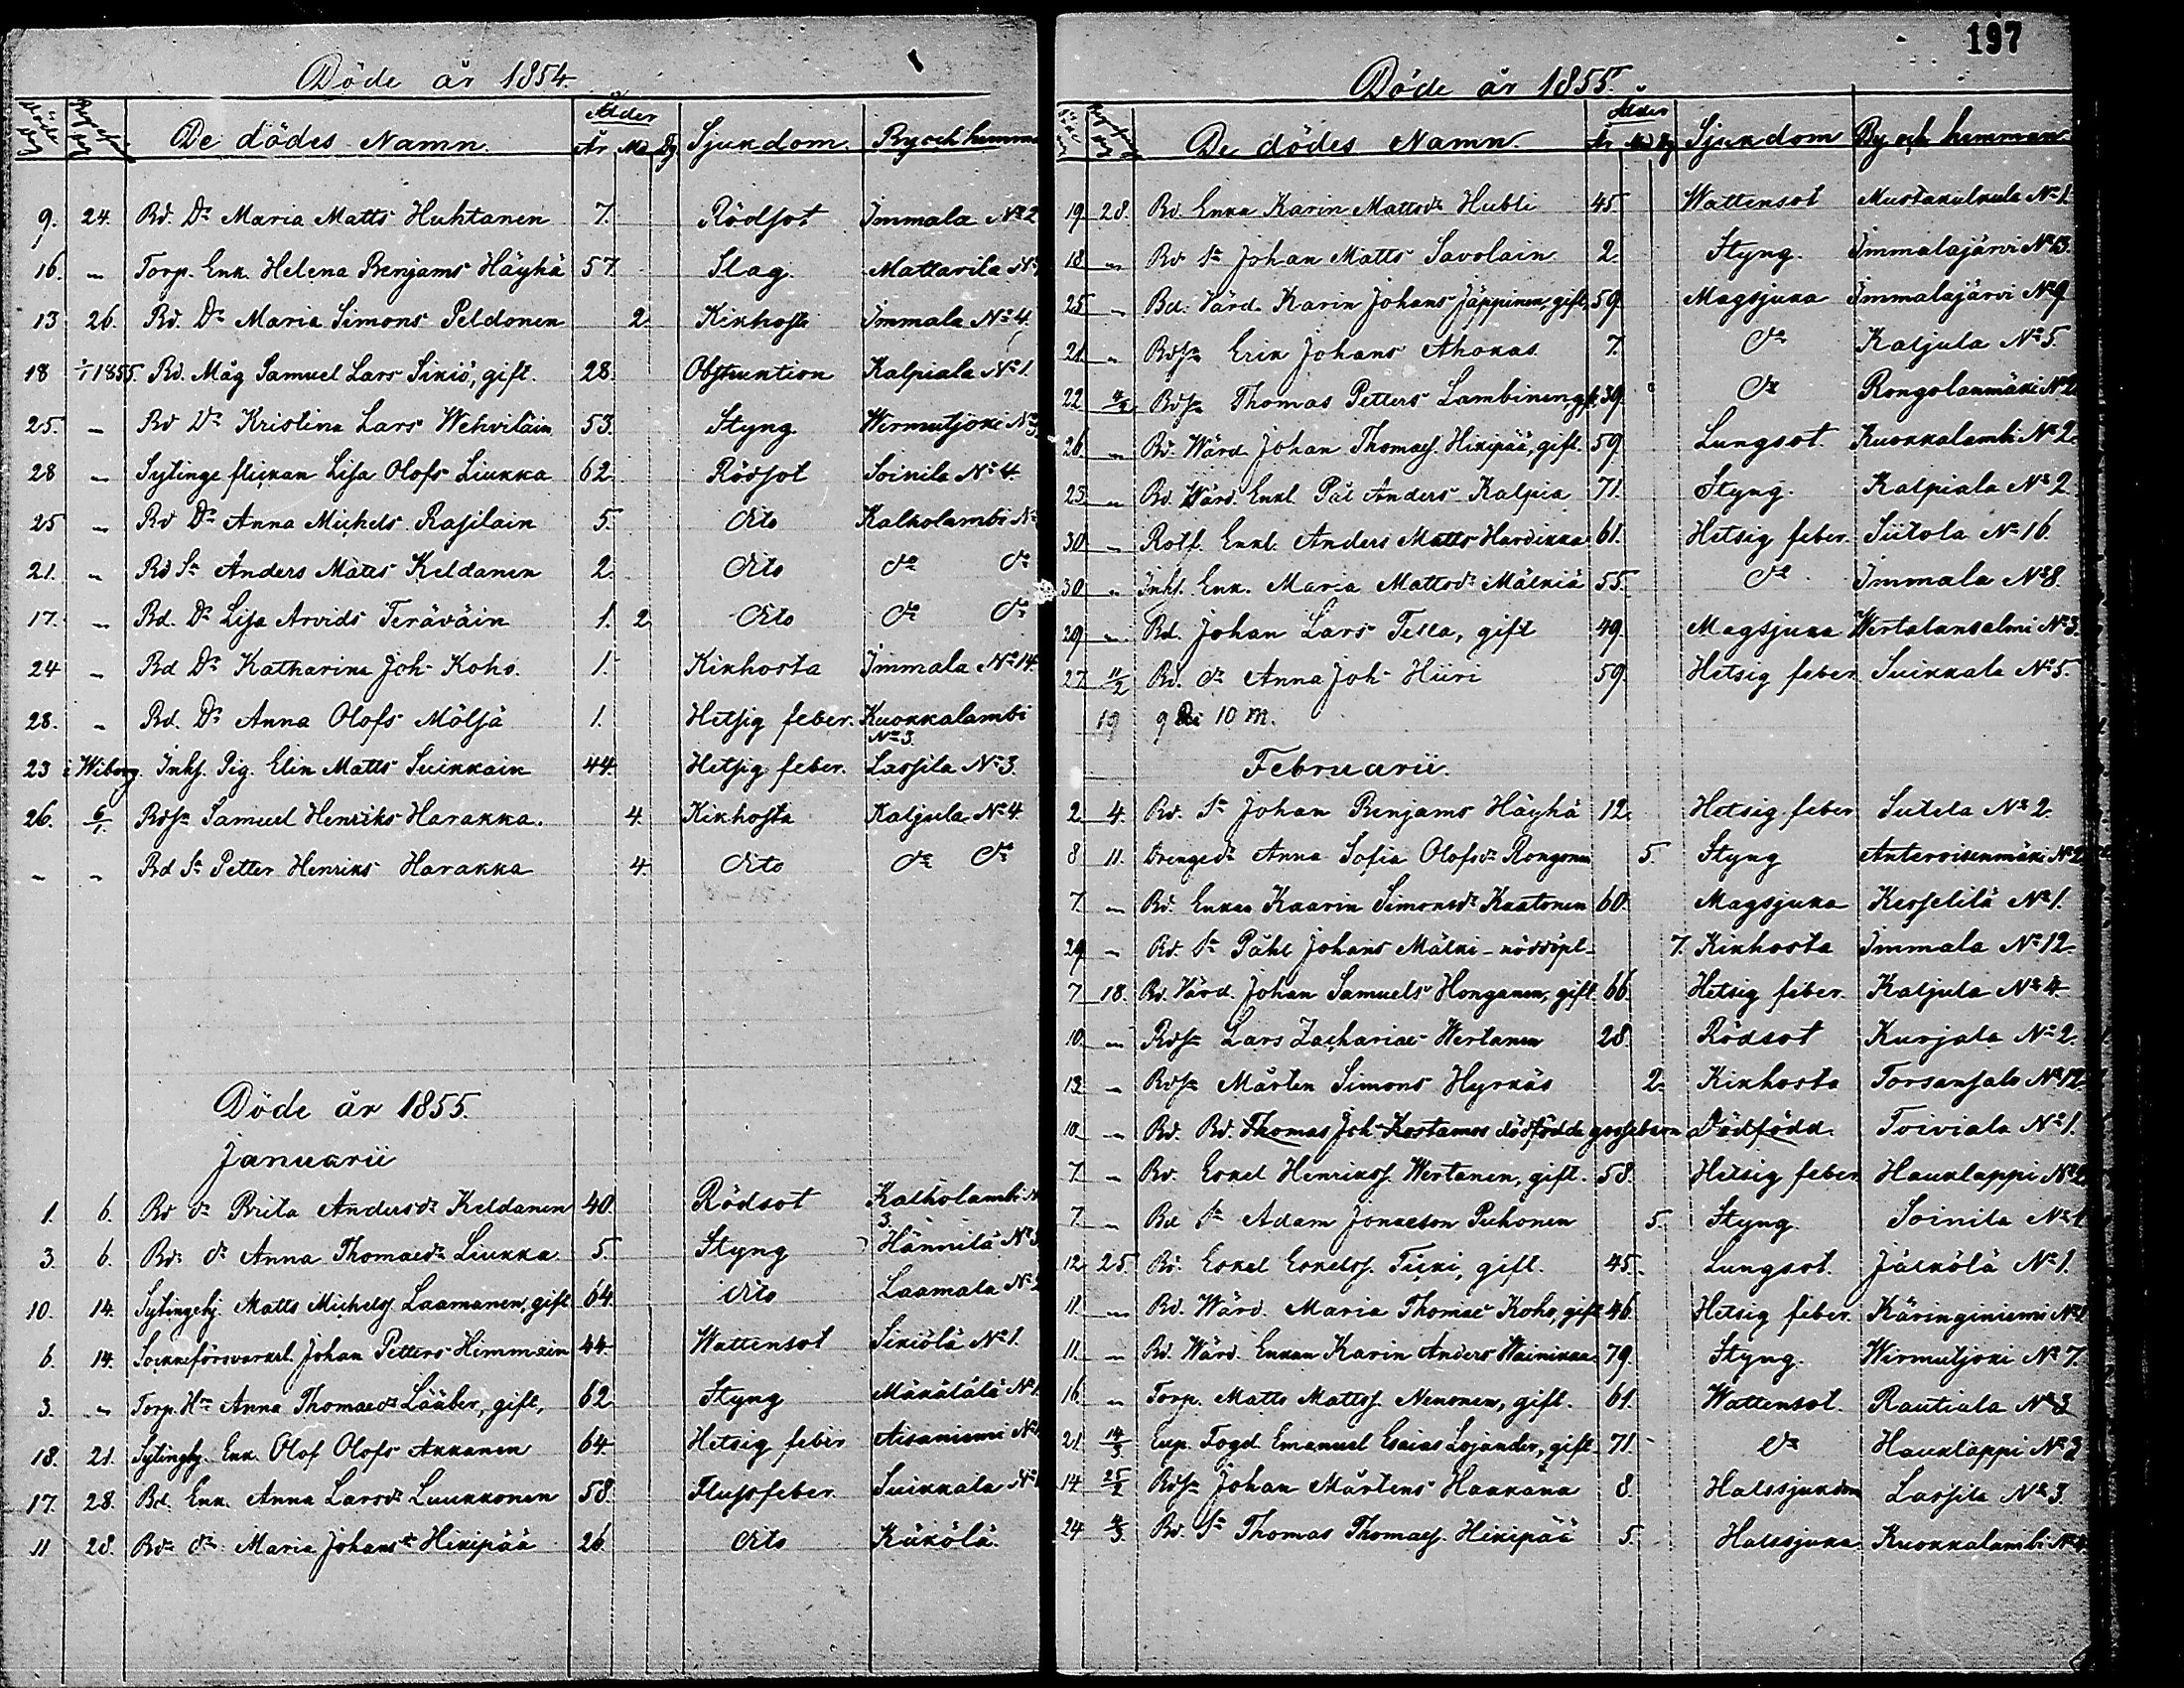 Döde år 1854.
Döde dag Begrafn. dag De dödes Namn. Ålder År Md Dg. Sjukdom. By och hemman
9. 24. Bd. Dr Maria Matts Huhtanen 7. Rödsot Immala No 2
16. " Torp. Enk. Helena Benjams Häyhä 57 Slag Mattarila No
13 26. Bd. Dr Maria Simons Peldonen 2 Kikhosta Immala No 4.
18 1/1 1855. Bd. Måg Samuel Lars Sikiö, gift. 28. Obstruktion Kalpiala No 1.
25. " Bd Dr Kristina Lars Wehviläin 53. Styng Wirmutjoki No 3.
28 " Sytinge flickan Lisa Olofs Liukka 62 Rödsot Soinila No 4.
25 " Bd Dr Anna Michels Rasilain 5. Dito Kalholambi No
21. " Bd Sn Anders Matts Keldanen 2. Dito do do
17. " Bd. Dr Lisa Arvids Teräväin 1. 2 Dito do do
24 " Bd Dr Katharina Joh. Koho. 1. Kikhosta Immala No 14.
28. " Bd. Dr Anna Olofs Möljä 1. Hetsig feber. Kuokkalambi No 3.
23 i Wiborg. Inhs. Pig. Elin Matts Suikkain 44. Hetsig feber. Lassila No 3.
26. 6/1. Bdsn Samuel Henriks Harakka. 4. Kikhosta Kaljula No 4.
" " Bd Sn Petter Henriks Harakka 4. Dito do do
Döde år 1855.
Januarii
1. 6. Bd dr Brita Andersdr Keldanen 40. Rödsot Kalholambi No 3.
3. 6. Bd. dr Anna Thomaedr Liukka 5. Styng Hännilä No 3
10. 14. Sytingehj. Matts Michelss. Laamanen, gift 64 Dito Laamala No 2
6. 14. Sockneförsvarskl. Johan Petters Himmain 44. Wattensot Sikiölä No 1.
3. " Torp. Hu Anna Thomaedr Lääber, gift, 62 Styng Mäkälälä No 1.
18. 21. Sytingehj. Enk. Olof Olofs Akkanen 64 Hetsig feber Aisaniemi No
17. 28. Bd. Enk. Anna Larsdr Luukkonen 58. Flussfeber Suikkala No
11 28. Bd. dr Maria Johansdr Hikipää 26. Dito Käkölä.
197
Döde år 1855.
Döde dag Begrafn. dag De dödes Namn. Ålder År Md Dg Sjukdom By och hemman.
19 28. Bd. Enka Karin Mattsdr Hubli 45. Wattensot Mustakulkula No 1.
18 " Bd. Sn Johan Matts Savolain 2. Styng. Immalajärvi No 13.
25 " Bd. Värd. Karin Johans Jäppinen, gift, 59. Magsjuka Immalajärvi No 9
21. " Bdsn Erik Johans Ahokas 7. do Kaljula No 5.
22 4/2 Bdsn Thomas Petters Lambinen, gft. 39. do Rongolanmäki No 2
26. " Bd. Wärd. Johan Thomaes. Hikipää, gift. 59. Lungsot. Kuokkalambi No 2.
23. " Bd. Wärd. Enkl. Pål Anders Kalpia 71. Styng. Kalpiala No 2
30 " Rotf. Enkl. Anders Matts Hardikka 61. Hetsig feber. Siitola No 16.
30 " Inhs. Enk. Maria Mattsdr Mälkiä 55. do Immala No 8.
29 " Bd. Johan Lars Tella, gift 49. Magsjuka Wertalansalmi No 3.
27. 11/2 Bd. dr Anna Joh. Hiiri 59. Hetsig feber Suikkala No 5.
19 9 Qi 10 M.
Februarii.
2. 4. Bd. Sn Johan Benjams Häyhä 12. Hetsig feber Sutela No 2.
8 11. Drengedr Anna Sofia Olofsdr Rongonen 5. Styng Anteroisenmäki No 2
7. " Bd. Enkan Kaarin Simonsdr Kaatonen 60. Magsjuka Kesselilä No 1.
29 " Bd. Sn Påhl Johans Mälki - nöddöpt - 7. Kikhosta Immala No 12.
7 18. Bd. Värd. Johan Samuels Honganen, gift. 66. Hetsig feber. Kaljula No 4.
10. " Bdsn Lars Zacharias Wertanen 28. Rödsot Kurjala No 2.
12. " Bdsn Mårten Simons Hyrkäs 2. Kikhosta Torsansalo No 12
10. " Bd. Bd. Thomas Joh. Kostamos dödfödda gossebarn Dödfödd. Toiviala No 1.
7 " Bd. Eskel Henrikss. Wertanen, gift. 58. Hetsig feber Hauklappi No 2
7. " Bd Sn Adam Jonaeson Puhonen 5. Styng Soinila No 1
12. 25. Bd. Eskel Eskelss. Tiiki, gift. 45. Lungsot. Jälkölä No 1.
11. " Bd. Wärd. Maria Thomae Koho, gift 46. Hetsig feber. Käringiniemi No 1
11. " Bd. Wärd. Enkan Karin Anders Wainikka 79. Styng. Wirmutjoki No 7.
16. " Torp. Matts Mattss. Nenonen, gift. 61. Wattensot. Rautiala No 3
21. 14/3 Exp. Fogd. Emanuel Esaias Lojander, gift. 71. do Hauklappi No 3
14 25/2 Bdsn Johan Mårtens Haakana 8. Halssjukdom Lassila No 3.
24 4/3. Bd. Sn Thomas Thomaes. Hikipää 5. Halssjuka Kuokkalambi No 4.